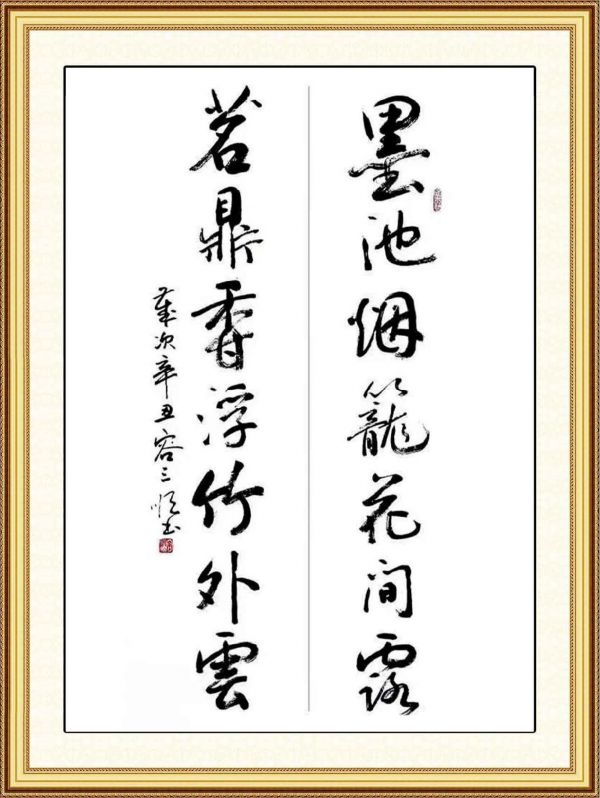 墨池烟籠花間露
茗鼎香浮竹外雲
歲次辛丑容三順书